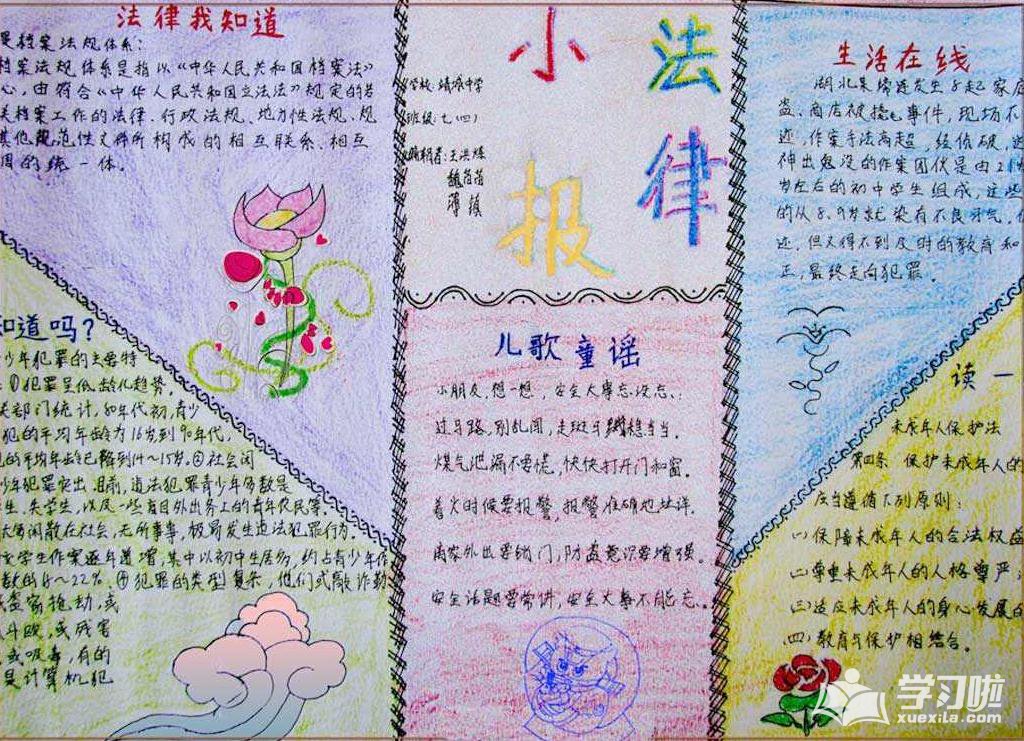 法律我知道
是档案法规体系:
档案法规体系是指以《中华人民共和国档案法》
心,由符合《中华人民共和国立法法》规定的若
关档案工作的法律、行政法规、地方性法规、规
其他规范性文件所构成的相互联系、相互
调的统一体。
知道吗?
少年犯罪的主要特
:①犯罪呈低龄化趋势,
关部门统计,80年代初,青少
犯的平均年龄为16岁到90年代,
的平均年龄已降到14~15岁。②社会闲
少年犯罪突出
违法犯罪青少年多数是
生、失学生,以及一些盲目外出务工的青年农民等。
大多闲散在社会,无所事事,极易发生违法犯罪行为。
学生作案逐年递增,其中以初中生居多,约占青少年作
数的
~22%。④犯罪的类型复杂,他们或敲诈勒
盗窃抢劫,或
斗殴,或残害
,或吸毒,有的
是计算机犯
小法律报
学校:靖城中学
班级:七(四)
编辑者:王洪烁
魏苗苗
薄
儿歌童谣
小朋友,想一想,安全大事忘没忘:
过马路,别乱闯,走斑马线稳当当。
煤气泄漏不要慌,快快打开门和窗。
着火时候要报警,报警准确地址详。
离家外出要锁门,防盗意识要增强。
安全话题要常讲,安全大事不能忘。
生活在线
湖北某
连发生8起家庭
盗、商店被撬事件,现场不
迹,作案手法高超,经侦破,这
神出鬼没的作案团伙是由2
岁左右的初中学生组成,这些
的从8、9岁就染有不良习气,
迹,但又得不到及时的教育和
正,最终走向犯罪。
读一
未成年人保护法
第四条 保护未成年人的
应当遵循下列原则:
(一)保障未成年人的合法权益
(二)尊重未成年人的人格尊严;
(三)适应未成年人的身心发展的
(四)教育与保护相结合。
学习啦
xuexila.com